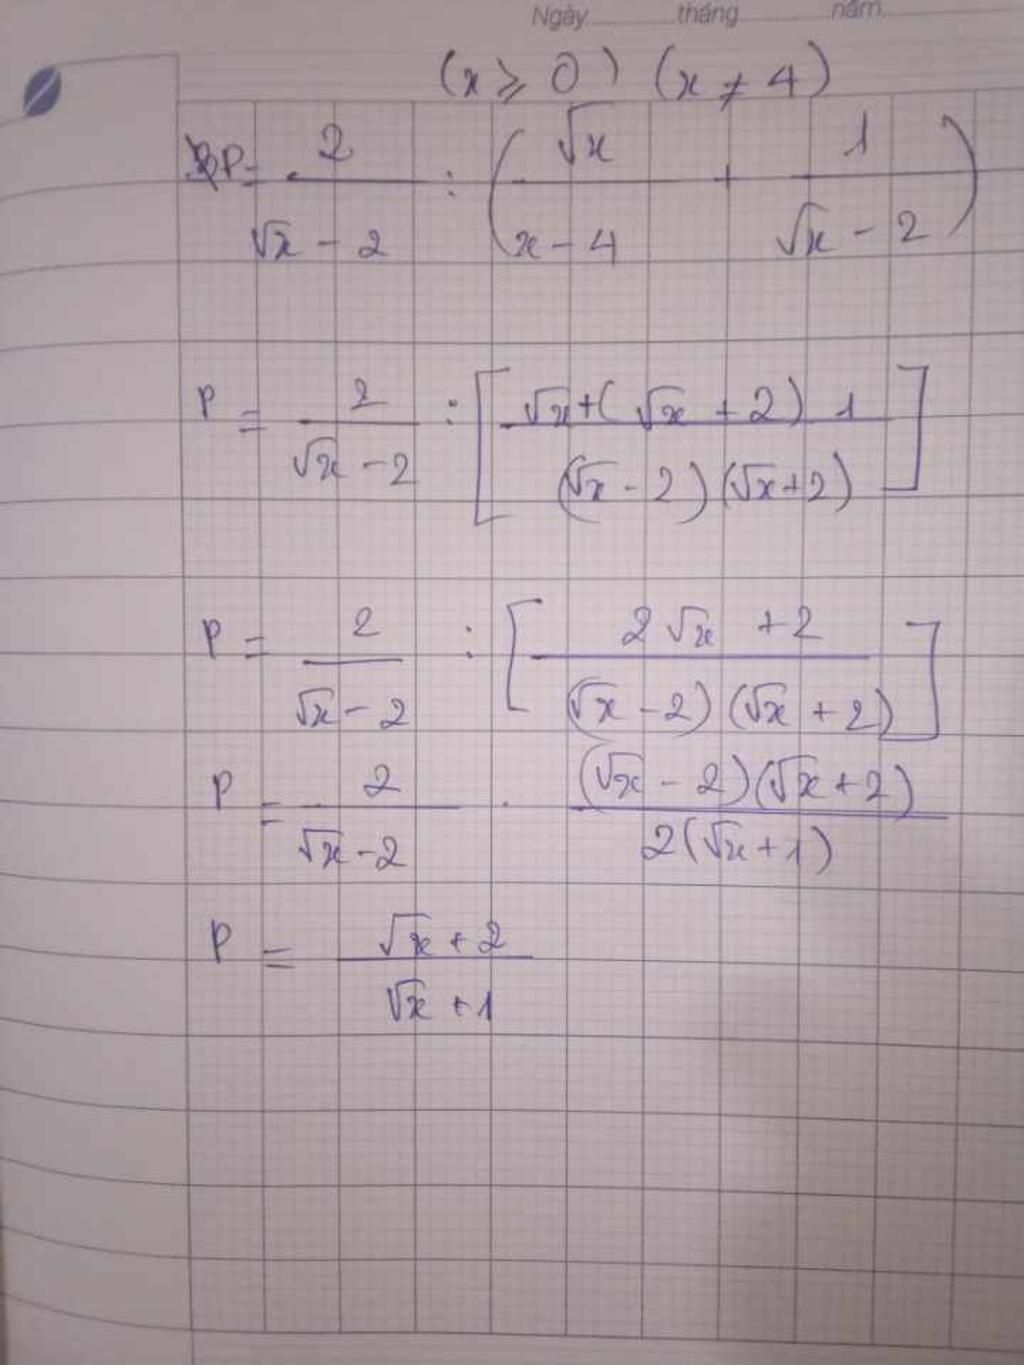 Ngày tháng năm
(x ⩾ 0) (x ≠ 4)
P = 2/(√x - 2) : (√x/(x - 4) + 1/(√x - 2))
P = 2/(√x - 2) : [(√x + (√x + 2) 1)/((√x - 2)(√x + 2))]
P = 2/(√x - 2) : [(2√x + 2)/((√x - 2)(√x + 2))]
P = 2/(√x - 2) · ((√x - 2)(√x + 2))/(2(√x + 1))
P = (√x + 2)/(√x + 1)